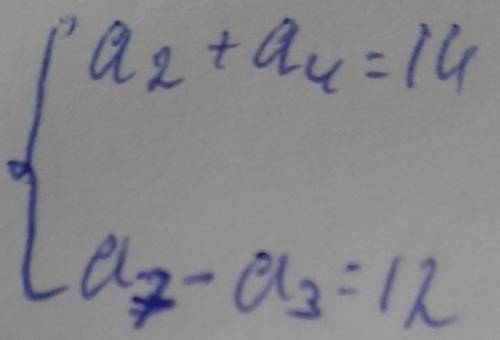 a₂ + a₄ = 14
a₇ - a₃ = 12